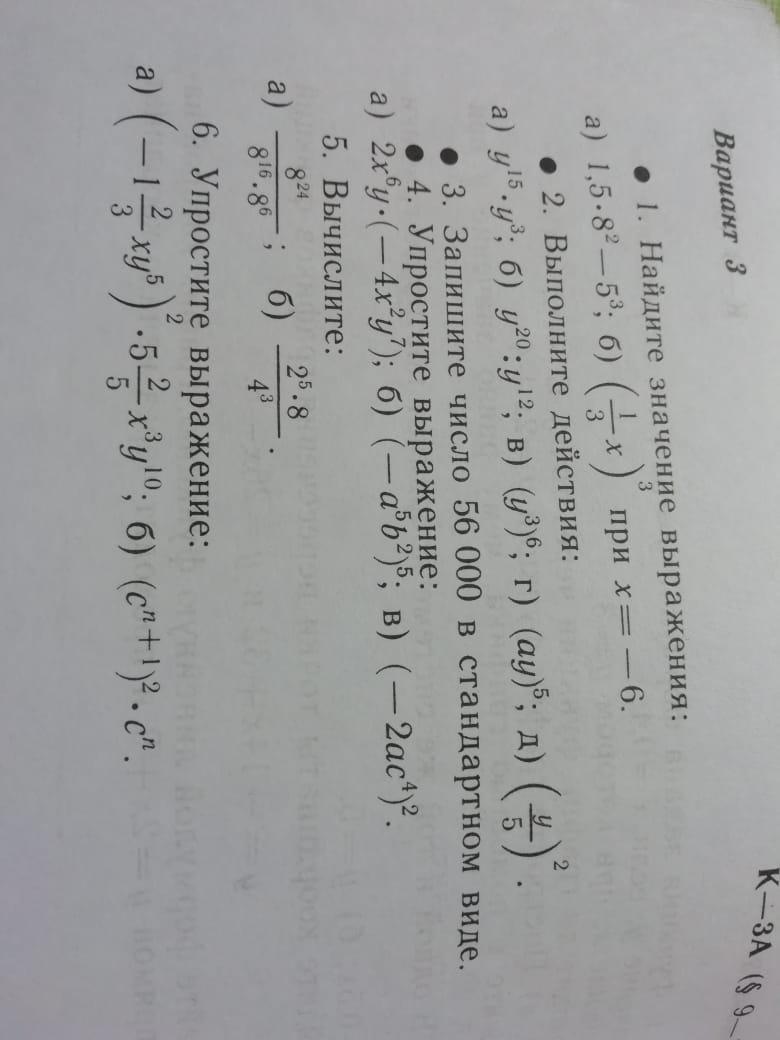 К—3А (§ 9—
Вариант 3
● 1. Найдите значение выражения:
а) 1,5·8² — 5³; б) (1/3 x)³ при x = —6.
● 2. Выполните действия:
а) y¹⁵·y³; б) y²⁰:y¹²; в) (y³)⁶; г) (ay)⁵; д) (y/5)².
● 3. Запишите число 56 000 в стандартном виде.
● 4. Упростите выражение:
а) 2x⁶y·(—4x²y⁷); б) (—a⁵b²)⁵; в) (—2ac⁴)².
5. Вычислите:
а) 8²⁴/(8¹⁶·8⁶); б) (2⁵·8)/4³.
6. Упростите выражение:
а) (—1 2/3 xy⁵)²·5 2/5 x³y¹⁰; б) (cⁿ⁺¹)²·cⁿ.